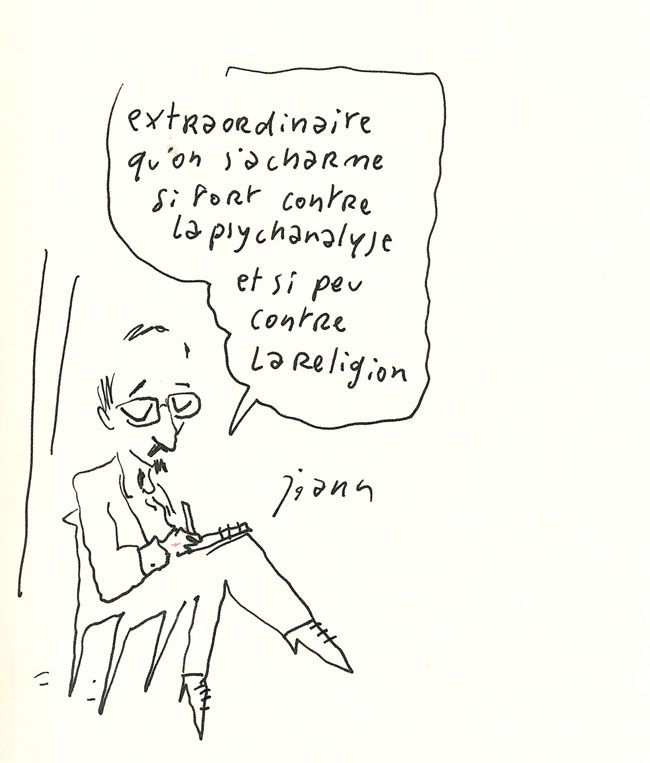 extraordinaire
qu'on s'acharme
si fort contre
la psychanalyse
et si peu
contre
la religion